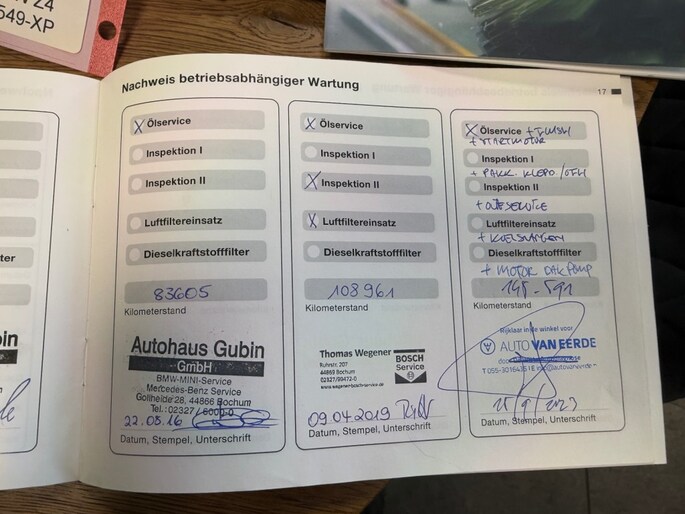 Z4
549-XP
Nachweis betriebsabhängiger Wartung
17
ter
bin
X Ölservice
Inspektion I
Inspektion II
Luftfiltereinsatz
Dieselkraftstofffilter
83605
Kilometerstand
Autohaus Gubin
GmbH
BMW-MINI-Service
Mercedes-Benz Service
Gollheide 28, 44866 Bochum
Tel.: 02327 / 6000-0
22.05.16
Datum, Stempel, Unterschrift
X Ölservice
Inspektion I
X Inspektion II
X Luftfiltereinsatz
Dieselkraftstofffilter
108961
Kilometerstand
Thomas Wegener
Ruhrstr. 207
44869 Bochum
BOSCH
Service
09.04.2019
Datum, Stempel, Unterschrift
X Ölservice
+ STARTMOTOR
Inspektion I
+ PAKK. KLEPD.
Inspektion II
Luftfiltereinsatz
+ KOELSLANGEN
Dieselkraftstofffilter
+ MOTOR
Kilometerstand
Rijklaar in de winkel voor
AUTO VAN EERDE
Datum, Stempel, Unterschrift